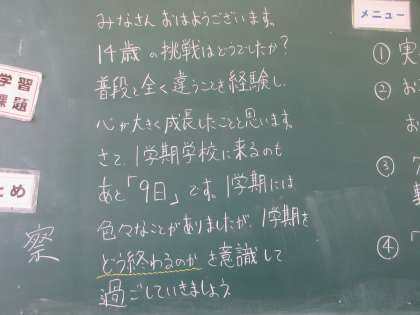 みなさん おはようございます。
14歳の挑戦はどうでしたか？
普段と全く違うことを経験し、
心が大きく成長したことと思います。
さて、1学期学校に来るのも
あと「9日」です。1学期には
色々なことがありましたが、1学期を
どう終わるのか を意識して
過ごしていきましょう。
学習
課題
とめ
察
メニュー
① 実
② お
お
③
④ 「